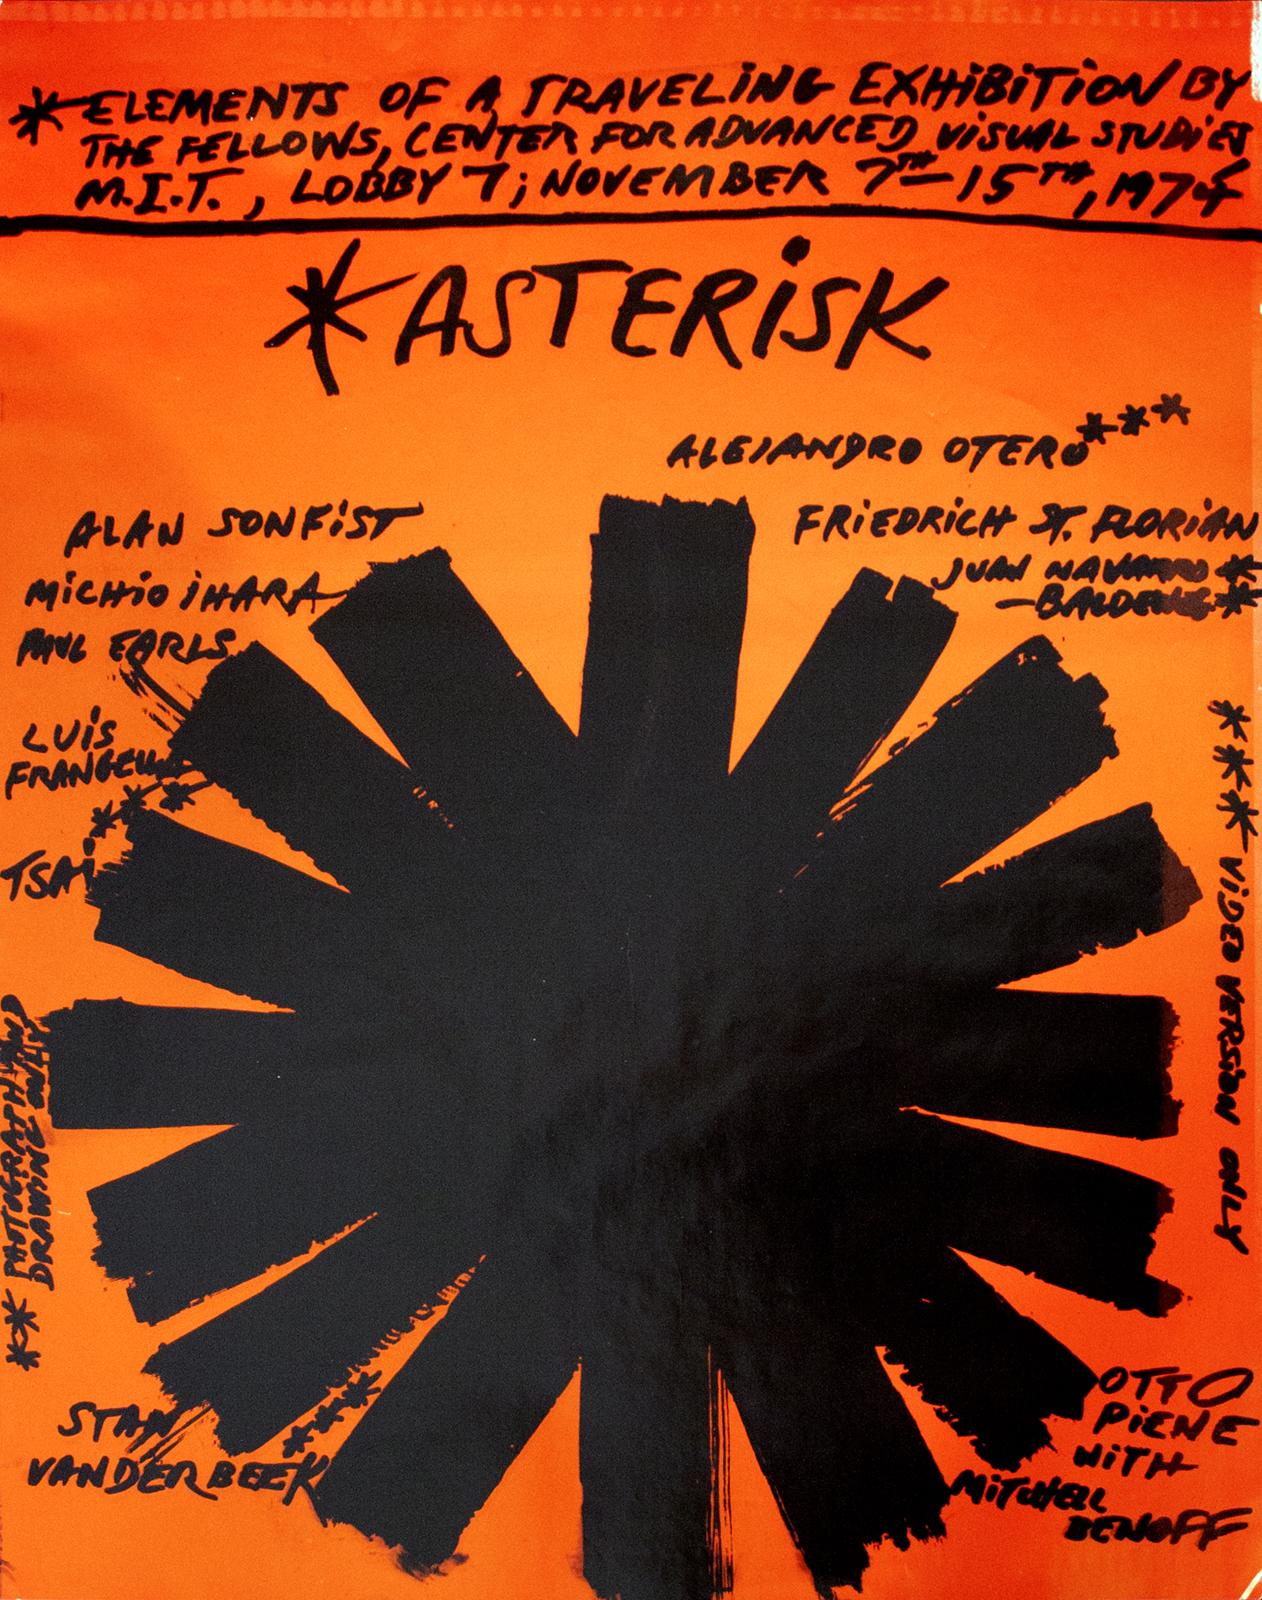 * ELEMENTS OF A TRAVELING EXHIBITION BY
THE FELLOWS, CENTER FOR ADVANCED VISUAL STUDIES
M.I.T., LOBBY 7; NOVEMBER 7TH—15TH, 1974
*ASTERISK
ALEJANDRO OTERO***
ALAN SONFIST
FRIEDRICH ST. FLORIAN
MICHIO IHARA
JUAN NAVARRO *
—BALDEWEG *
PAUL EARLS
LUIS
FRANGELLA
***
TSAI
*** VIDEO VERSION ONLY
** PHOTOGRAPH AND
DRAWING ONLY
STAN
VANDERBEEK
****
OTTO
PIENE
WITH
MITCHELL
BENOFF